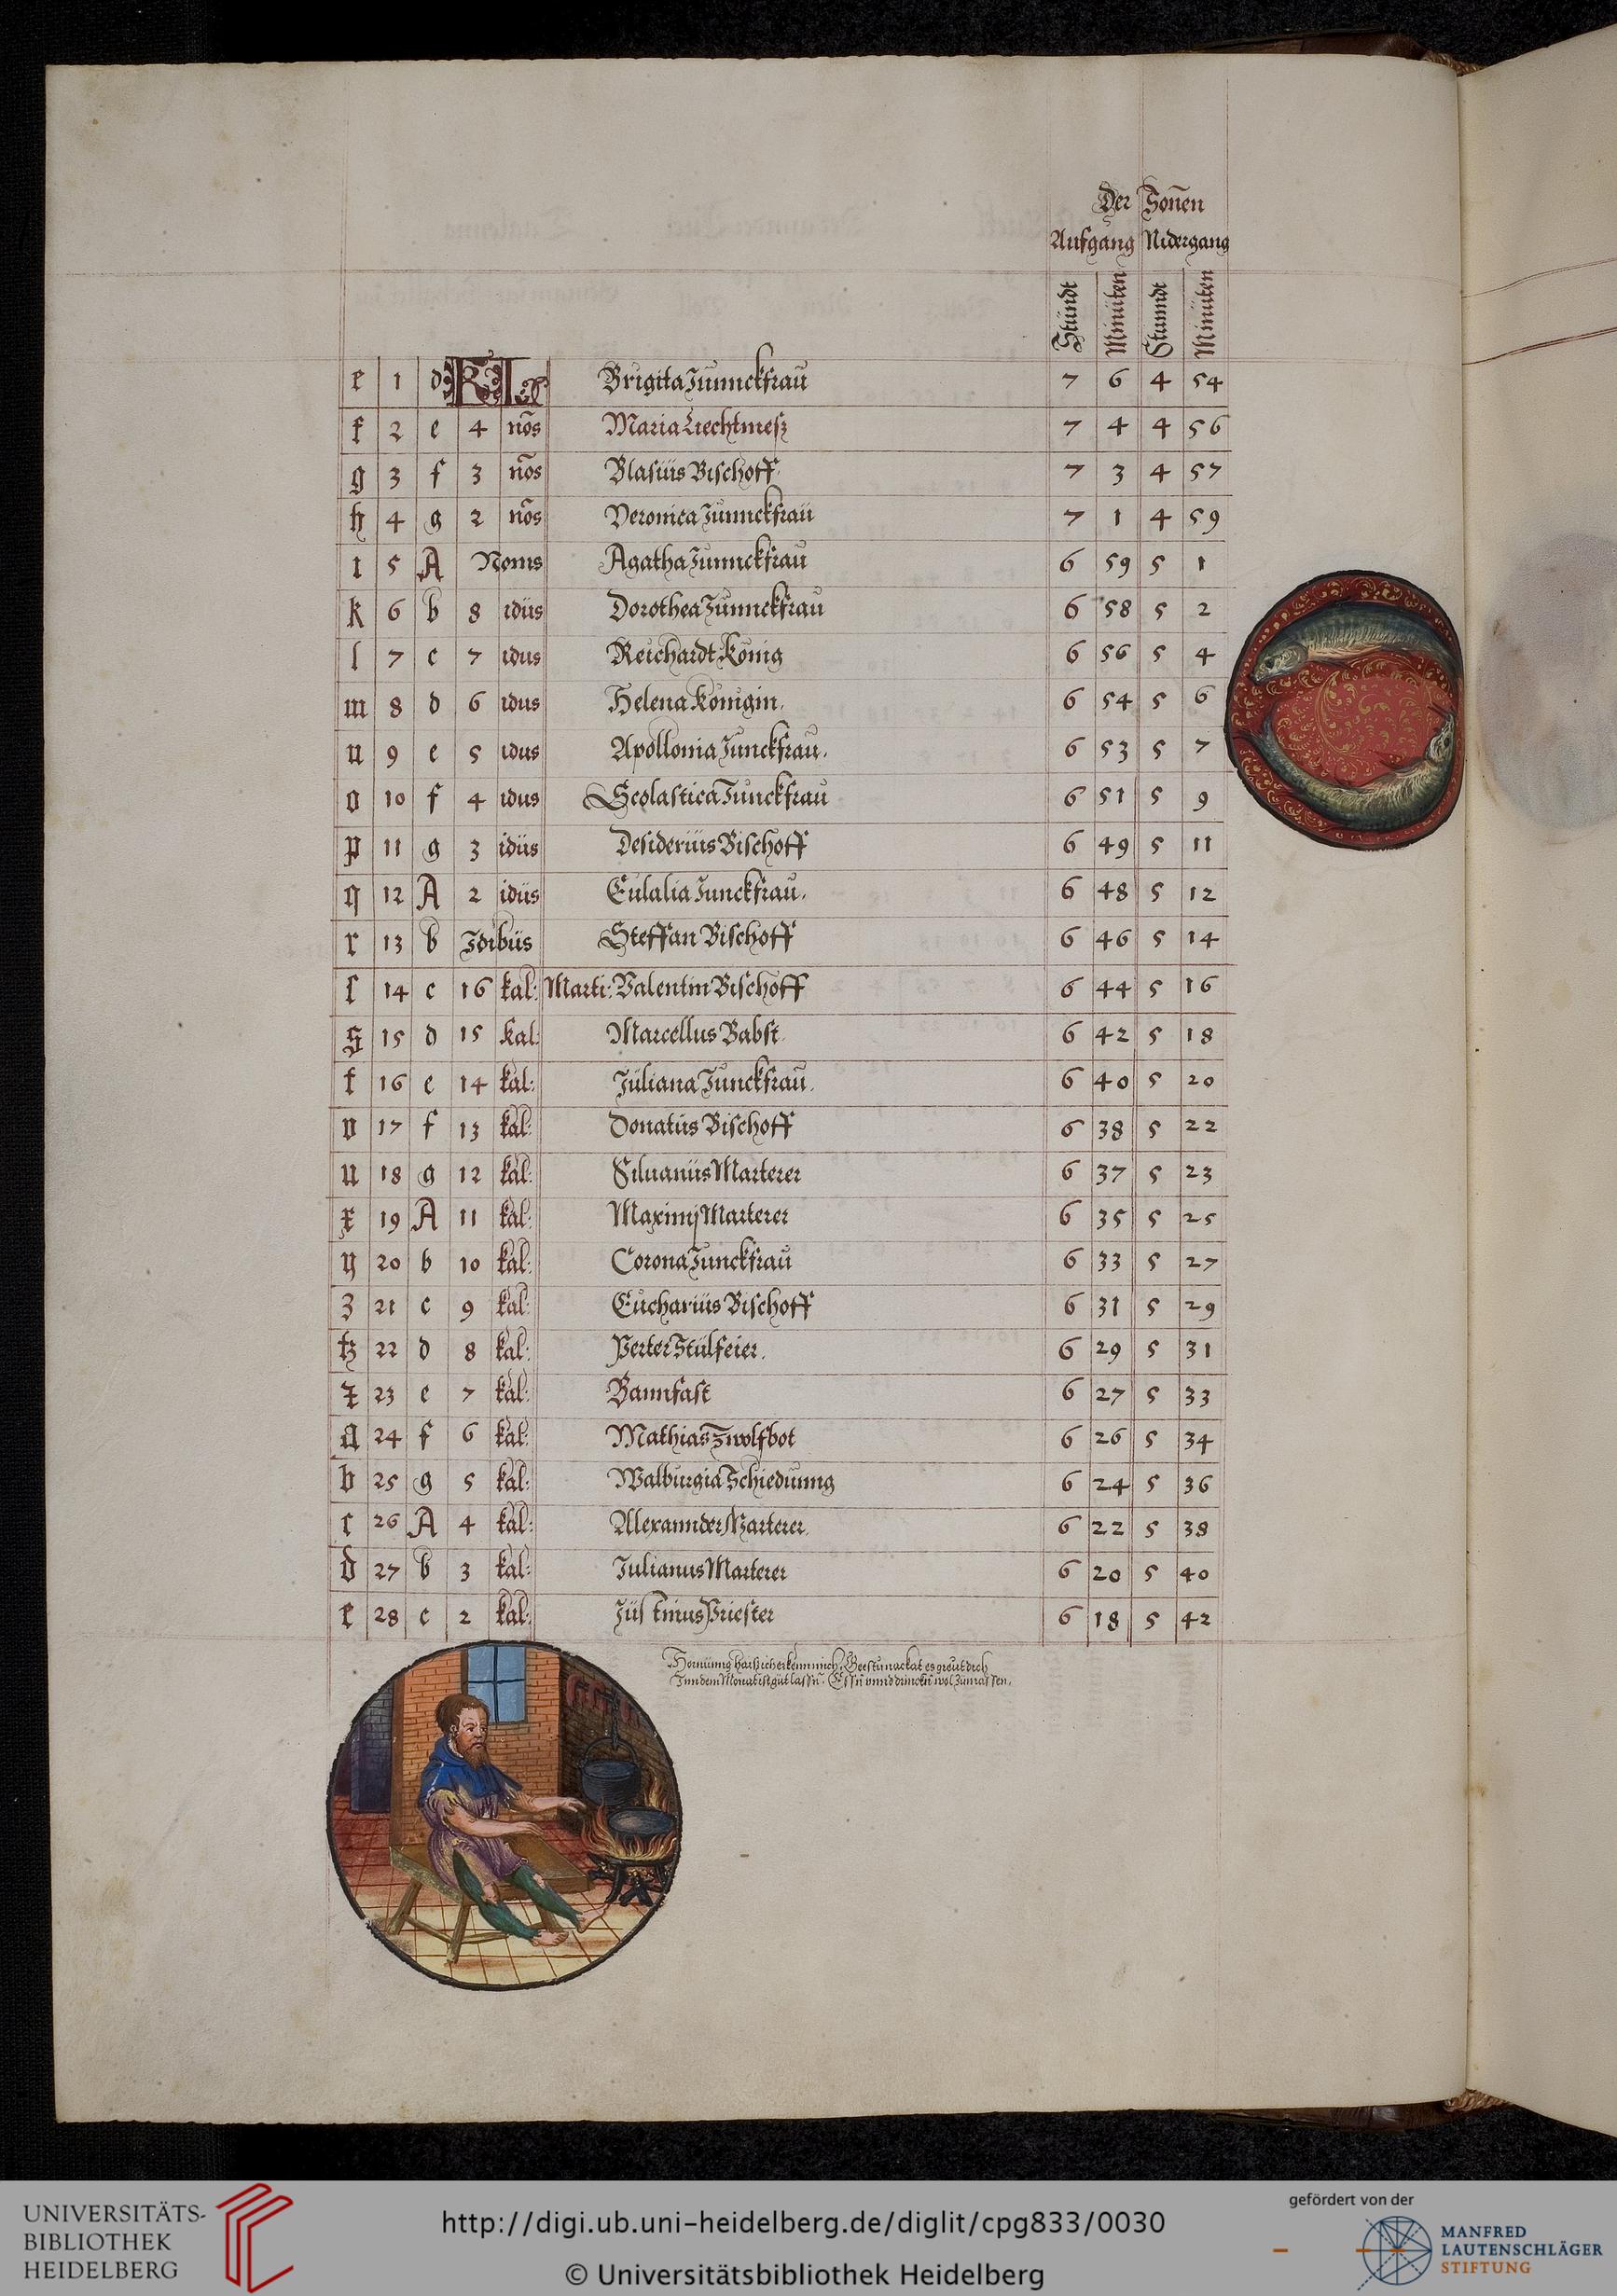 Der Soñen
Aufgang Nidergang
Stundt Minuten Stunndt Minuten
e 1 d KL Brigita Junnckfrau 7 6 4 54
f 2 e 4 nõs Maria Liechtmesz 7 4 4 56
g 3 f 3 nõs Blasius Bischoff 7 3 4 57
h 4 g 2 nõs Veronica Junnckfrau 7 1 4 59
i 5 A Nonis Agatha Junnckfrau 6 59 5 1
k 6 b 8 idus Dorothea Junnckfrau 6 58 5 2
l 7 c 7 idus Reichardt König 6 56 5 4
m 8 d 6 idus Helena Königin. 6 54 5 6
n 9 e 5 idus Apollonia Junckfrau. 6 53 5 7
o 10 f 4 idus Scolastica Junckfrau 6 51 5 9
p 11 g 3 idus Desiderius Bischoff 6 49 5 11
q 12 A 2 idus Eulalia Junckfrau. 6 48 5 12
r 13 b Idibus Steffan Bischoff 6 46 5 14
ſ 14 c 16 kal: Marti: Valentin Bischoff 6 44 5 16
s 15 d 15 kal: Marcellus Babst. 6 42 5 18
t 16 e 14 kal: Juliana Junckfrau. 6 40 5 20
v 17 f 13 kal: Donatus Bischoff 6 38 5 22
u 18 g 12 kal: Siluanus Marterer 6 37 5 23
x 19 A 11 kal: Maximij Marterer 6 35 5 25
y 20 b 10 kal: Corona Junckfrau 6 33 5 27
z 21 c 9 kal: Eucharius Bischoff 6 31 5 29
tz 22 d 8 kal: Perter Stulfeier. 6 29 5 31
23 e 7 kal: Bannfast 6 27 5 33
a 24 f 6 kal: Mathias Zwolfbot 6 26 5 34
b 25 g 5 kal: Walburgia Schiedunng 6 24 5 36
c 26 A 4 kal: Alexannder Marterer. 6 22 5 38
d 27 b 3 kal: Julianus Marterer 6 20 5 40
e 28 c 2 kal: Justinus Priester 6 18 5 42
Hornunng haisz ich erkenn mich. Geestu nackat es greut dich
Inn dem Monat ist gut lassñ. Essñ vnnd drinckñ wol zu massen.
UNIVERSITÄTS-
BIBLIOTHEK
HEIDELBERG
http://digi.ub.uni-heidelberg.de/diglit/cpg833/0030
© Universitätsbibliothek Heidelberg
gefördert von der
MANFRED
LAUTENSCHLÄGER
STIFTUNG